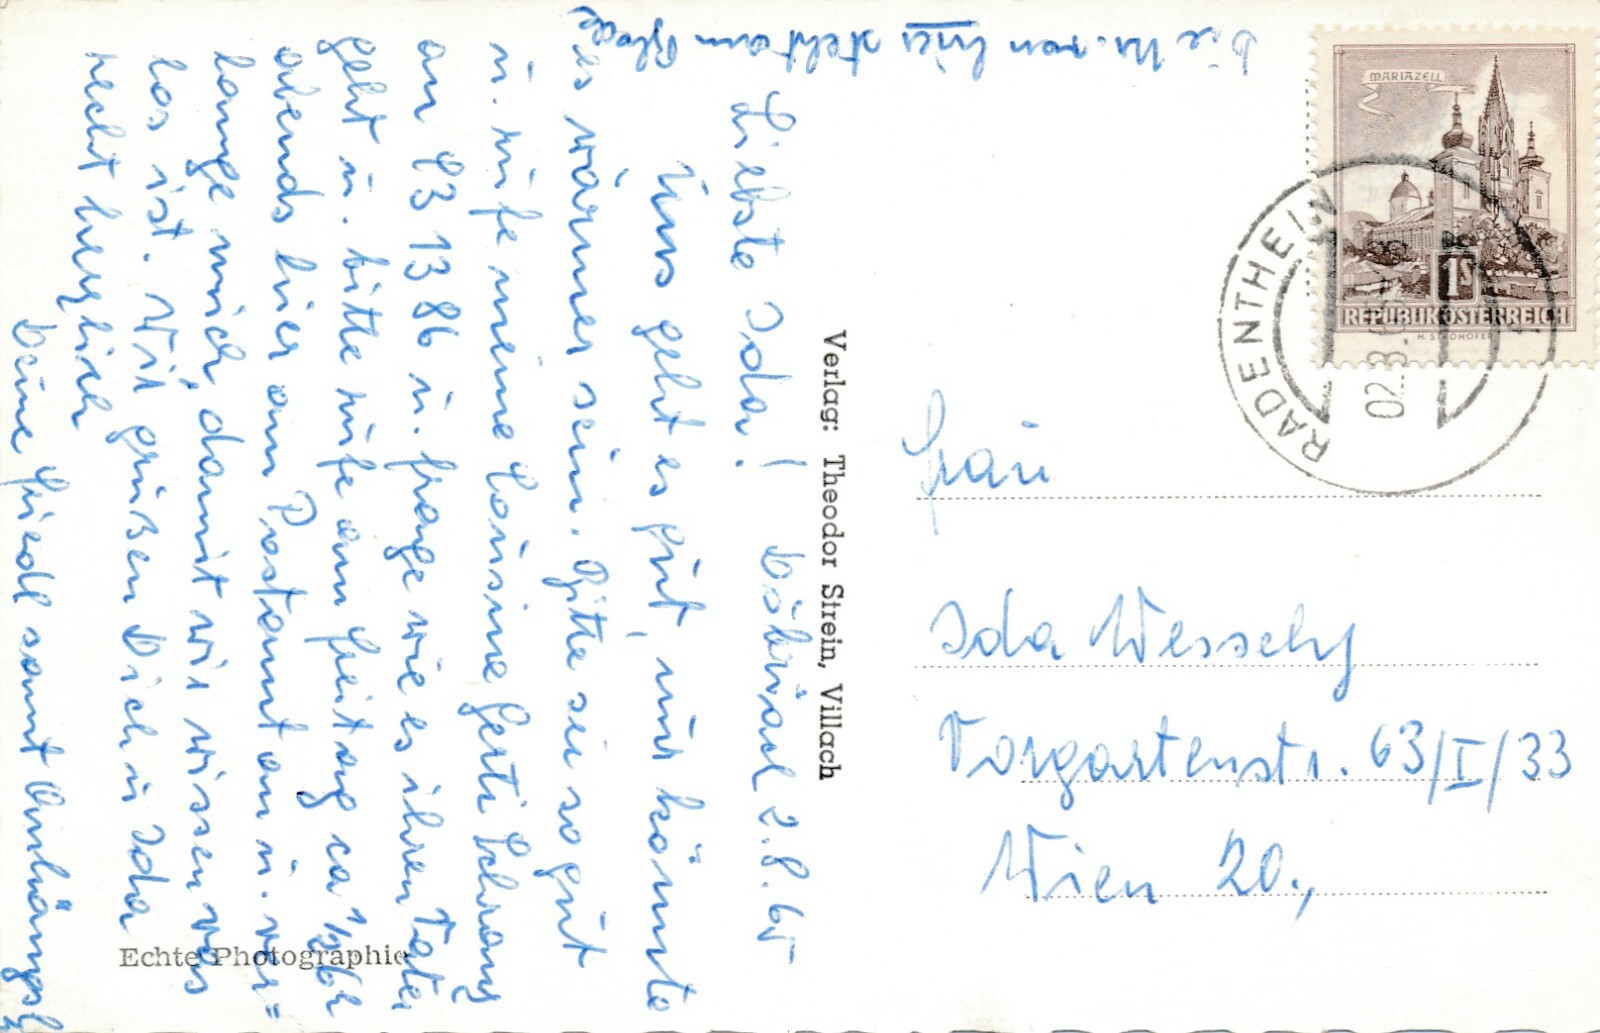 Die Nr. von hier steht am Bloge
Liebste Ida! Döbriach 2.8.65
Uns geht es gut, nur könnte
es wärmer sein. Bitte sei so gut
u. rufe meine Cousine Gerti Schrany
an 43 13 86 u. frage wie es ihrem Vater
geht u. bitte rufe am Freitag ca 1/2 6h
abends hier am Postamt an u. ver=
lange mich, damit wir wissen was
los ist. Wir grüßen Dich u Ida
recht herzlich
Deine Friedl samt Anhängsl
Verlag: Theodor Strein, Villach
Echte Photographie
MARIAZELL
1S
REPUBLIK ÖSTERREICH
RADENTHEIN
Frau
Ida Wessely
Vorgartenstr. 63/I/33
Wien 20.,